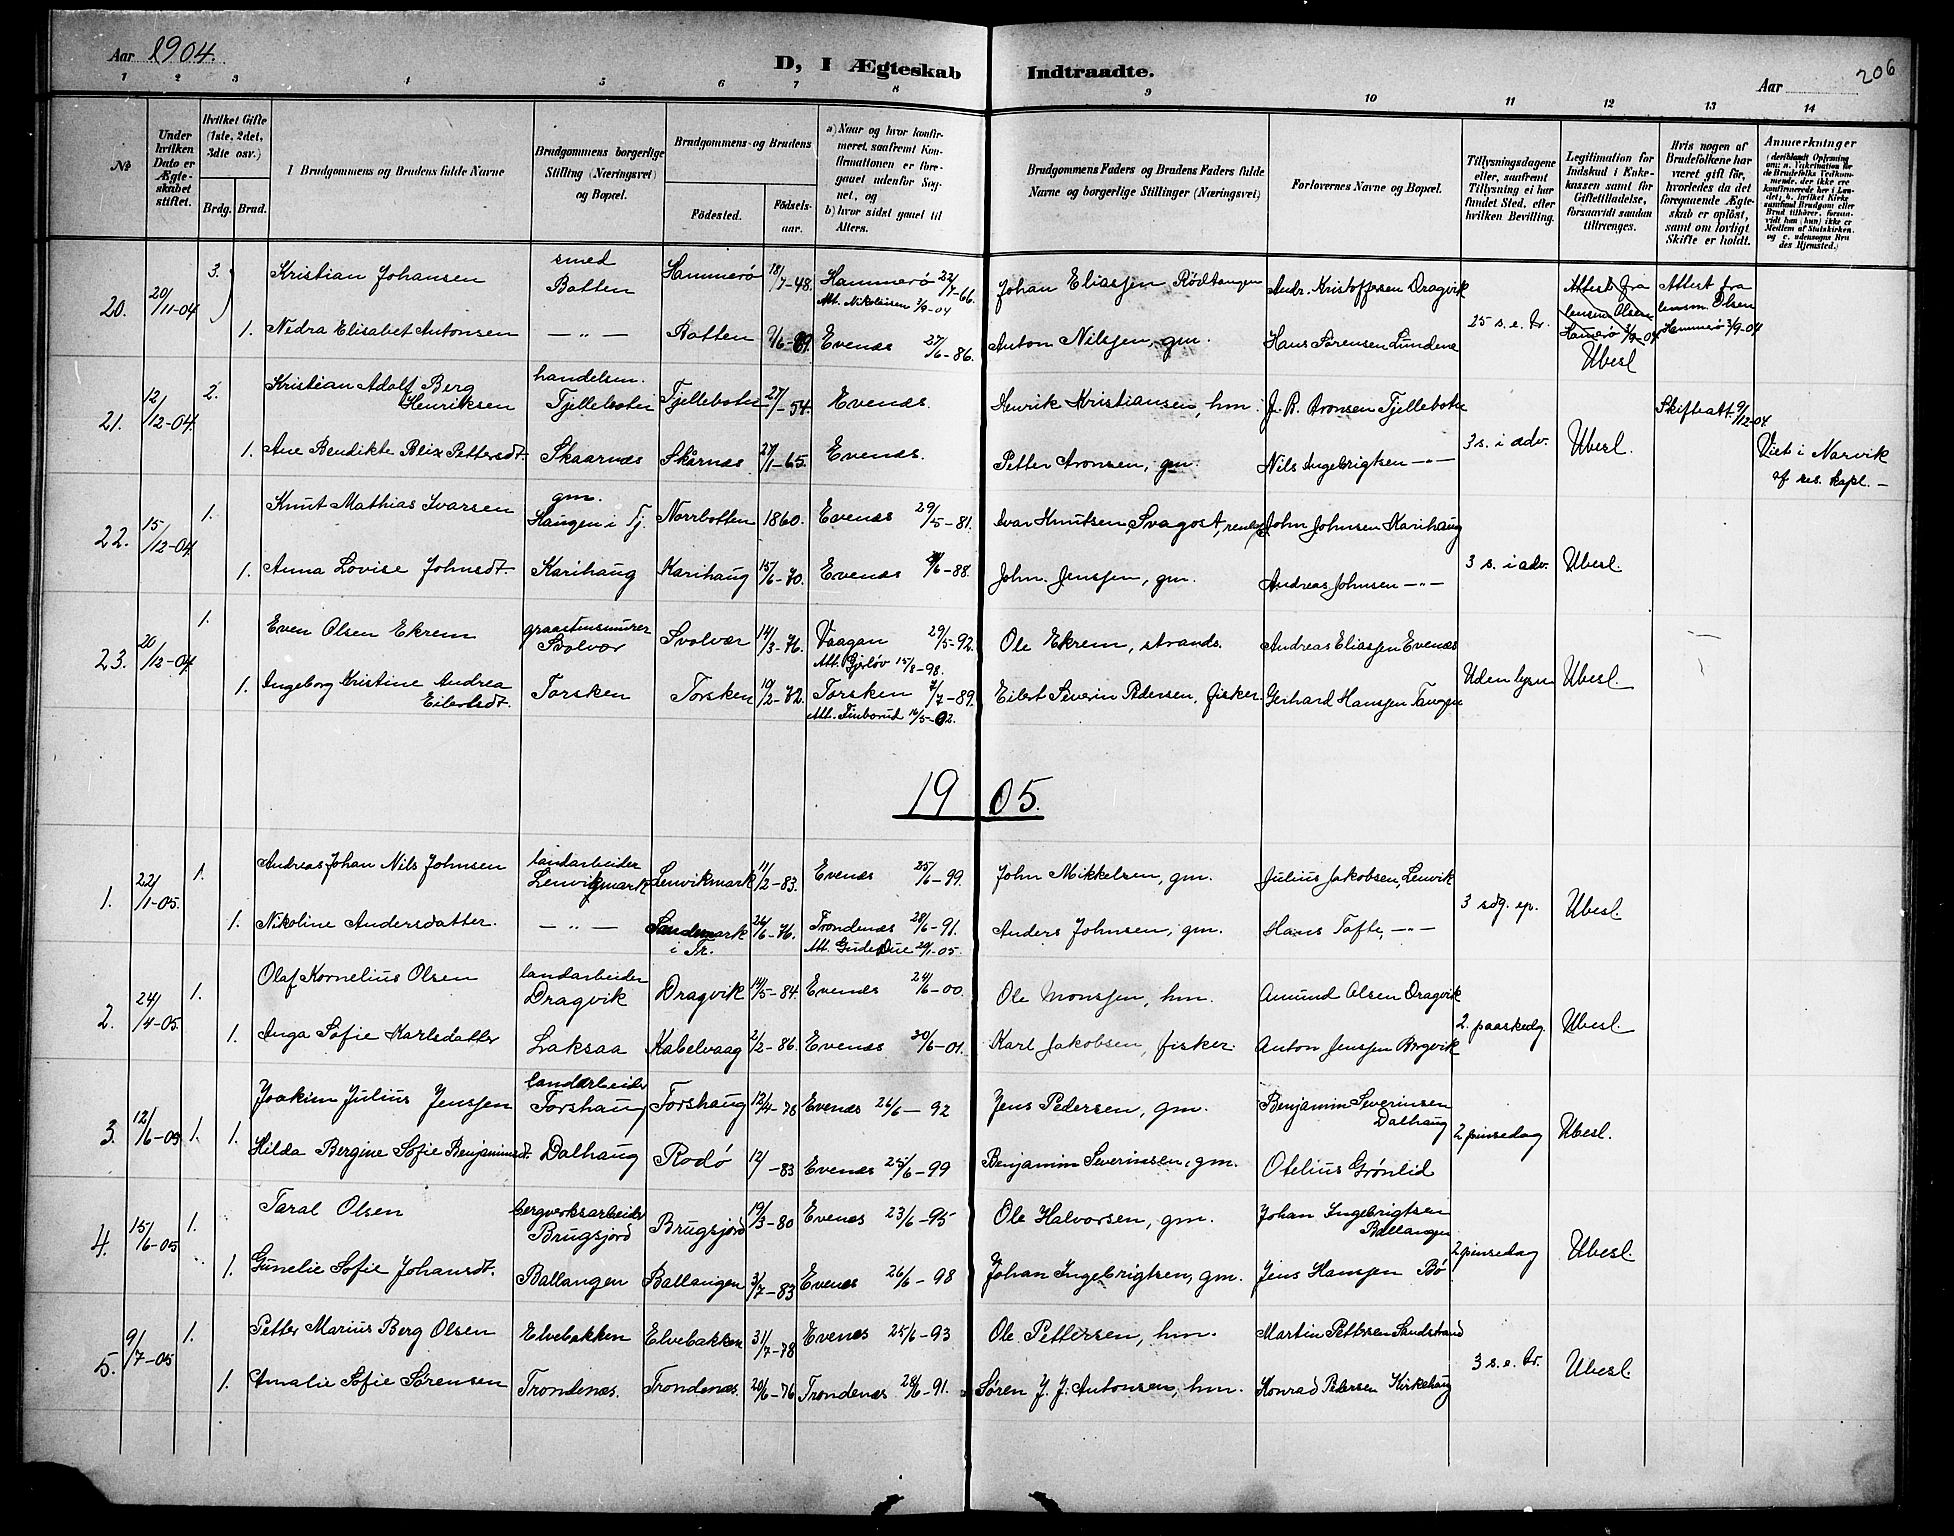 Aar 1904.
D, I Ægteskab Indtraadte.
Aar
206
1 2 3 4 5 6 7 8 9 10 11 12 13 14
№
Under hvilken Dato er Ægteskabet stiftet.
Hvilket Gifte (1ste, 2det, 3dte osv.)
Brdg. Brud.
I Brudgommens og Brudens fulde Navne
Brudgommens borgerlige Stilling (Næringsvei) og Bopæl.
Brudgommens- og Brudens
Fødested.
Fødselsaar.
a) Naar og hvor konfirmeret, saafremt Konfirmationen er foregaaet udenfor Sognet, og
b) hvor sidst gaaet til Alters.
Brudgommens Faders og Brudens Faders fulde Navne og borgerlige Stillinger (Næringsvei)
Forlovernes Navne og Bopæl.
Tillysningsdagene eller, saafremt Tillysning ei har fundet Sted, efter hvilken Bevilling.
Legitimation for Indskud i Enkekassen samt for Giftetilladelse, forsaavidt saadan tiltrænges.
Hvis nogen af Brudefolkene har været gift før, hvorledes da det foregaaende Ægteskab er opløst, samt om lovligt Skifte er holdt.
Anmærkninger
20. 20/11-04 3. Kristian Johansen smed Botten Hammerø 18/7-48. Hammerø 22/7-66. Att. Nikolaisen 3/9-04 Johan Eliasjen Rödtangen Andr. Kristoffersen Dragvik 25 s. e. tr. Attest fra lensm Olsen Hamerø 3/9-04 Ubesl Attest fra lensm. Olsen Hammerø 3/9-04
1. Nedra Elisabet Antonsen — " — Botten Evenæs 27/6-86. Anton Nilsjen, gm. Hans Sørensen Lundene
21. 12/12-04. 2. Kristian Adolf Berg Henriksen handelsm. Fjellebotn Fjellebotn 27/-54. Evenæs. Henrik Kristiansen, hm. J. R. Aronsen Fjellebotn 3 s. i adv. Ubesl. Skifteatt. 9/12-04
1. Ane Bendikte Blix Pettersdt. Skaarnæs Skårnæs 27/1-65. Evenæs. Petter Aronsen, gm. Nils Ingebrigtsen — " — Viet i Narvik af res. kapl. —
22. 15/12-04 1. Knut Mathias Ivarsen gm. Haugen i Tj. Norrbotten 1860. Evenæs 29/5-81. Ivar Knutsen, Svagost, John Johnsen Karihaug 3 s. i adv. Ubesl.
1. Anna Lovise Johnsdt. Karihaug Karihaug 15/6-70. Evenæs /6-88. John. Jensjen, gm. Andreas Johnsen — " —
23. 20/12-04 1. Even Olsen Ekrem graastensmurer Svolvær Svolvær 14/3-76. Vaagan 29/5-92. Att. Gjerløv 15/8-98. Ole Ekrem, strands. Andreas Eliasjen Evenæs Uden lysn Ubesl.
1. Ingeborg Kristine Andrea Eilertsdt. Torsken Torsken 10/2-72. Torsken 7/7-89. Att. Finborud 16/5-02. Eilert Severin Pedersen, fisker Gerhard Hansjen Tangen
1905.
1. 22/1-05. 1. Andreas Johan Nils Johnsen landarbeider Lenvikmark Lenvikmark 11/2-83. Evenæs 25/6-99. John Mikkelsen, gm. Julius Jakobsen, Lenvik 3 sdg. ep. Ubesl.
1. Nikoline Andersdatter. — " — Sandemark i Tr. 26/6-76. Trondenæs 28/6-91. Att. Gude Due 20/1-05. Anders Johnsen, gm. Hans Tofte, — " —
2. 24/4-05. 1. Olaf Kornelius Olsen landarbeider Dragvik Dragvik 14/5-84. Evenæs 24/6-00. Ole Monsjen, hm. Amund Olsen Dragvik 2. paaskedg. Ubesl.
1. Anga Sofie Karlsdatter Laksaa Kabelvaag 2/2-86. Evenæs 30/6-01. Karl Jakobsen, fisker. Anton Jensjen Bergvik
3. 12/6-05 1. Joakim Julius Jensjen landarbeider Forshaug Forshaug 12/4-78 Evenæs 26/6-92 Jens Pedersen, gm. Benjamin Severinsen Dalhaug 2 pinsedag Ubesl.
1. Hilda Bergine Sofie Benjaminsdt. Dalhaug Rodø 12/-83 Evenæs 25/6-99 Benjamin Severinsen, gm. Otelius Grønlid
4. 15/6-05 1. Taral Olsen bergverksarbeider Brugsjord Brugsjord 19/3-80 Evenæs 23/6-95 Ole Halvorsen, gm. Johan Ingebrigtsen Ballangen 2 pinsedag Ubesl.
1. Gunelie Sofie Johansdt. Ballangen Ballangen 3/7-83 Evenæs 26/6-98 Johan Ingebrigtsen, gm. Jens Hansjen Bø
5. 9/7-05 1. Petter Marius Berg Olsen Elvebakken Elvebakken 31/7-78 Evenæs 25/6-93 Ole Pettersen, hm. Martin Pettersen Sandstrand 3 s. e. tr. Ubesl.
1. Amalie Sofie Sørensen Trondenæs. Trondenæs. 20/6-76 Trondenæs 28/6-91. Søren J. J. Antonsen, hm. Konrad Petersen Kirkehaug